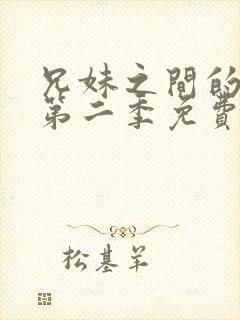 兄妹之間的
第二季免費
松基羊